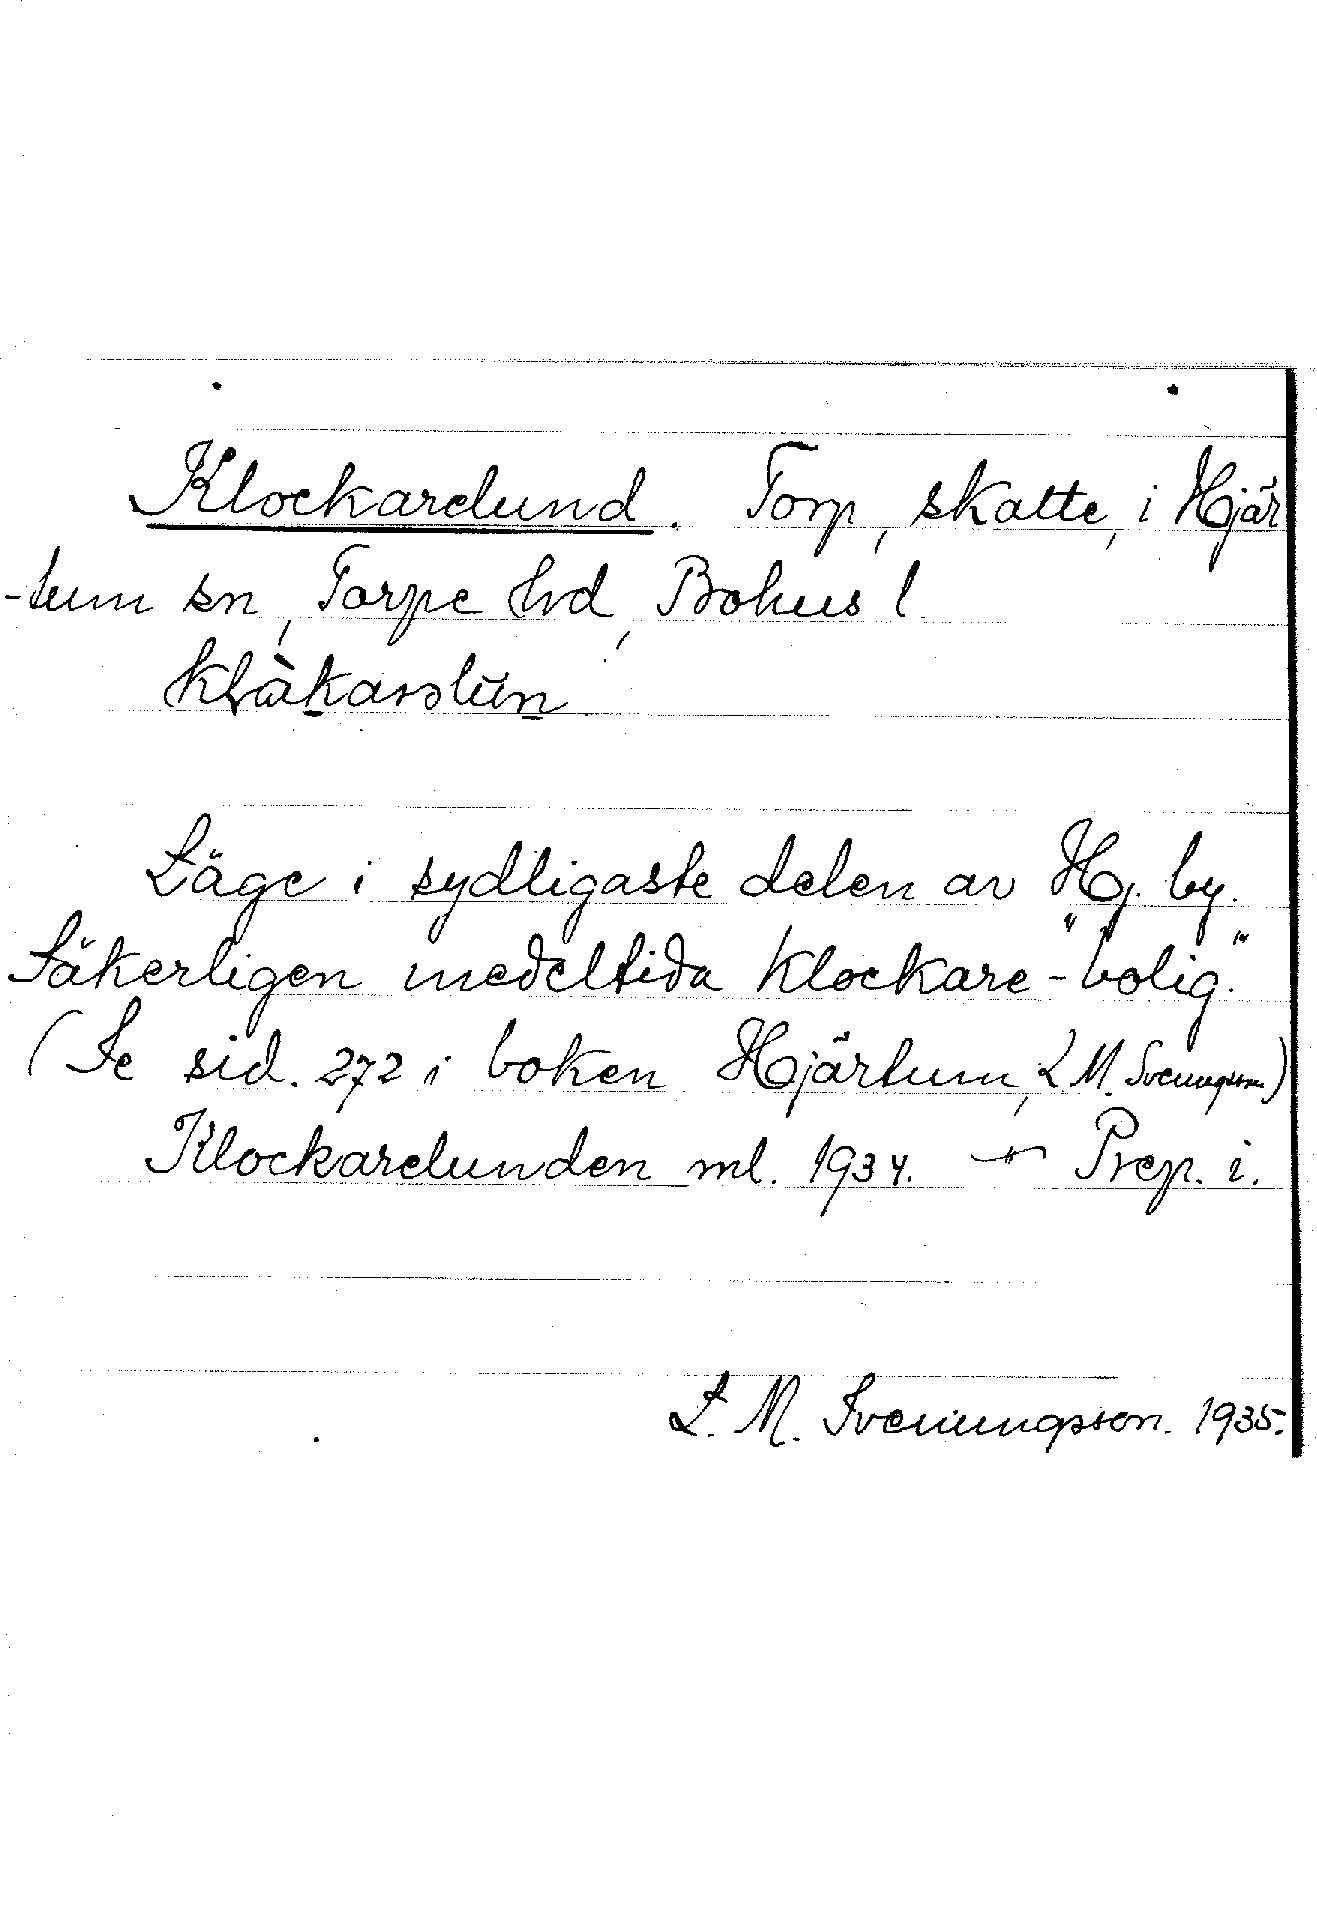 Klockarelund. Torp, skatte, i Hjär
-tum sn, Torpe hd, Bohus l
Läge i sydligaste delen av Hj. by.
Säkerligen medeltida klockare-"bolig."
(Se sid. 272 i boken Hjärtum, L M. Svenungson)
Klockarelunden ml. 1934. — Prep. i.
L. M. Svenungson. 1935.